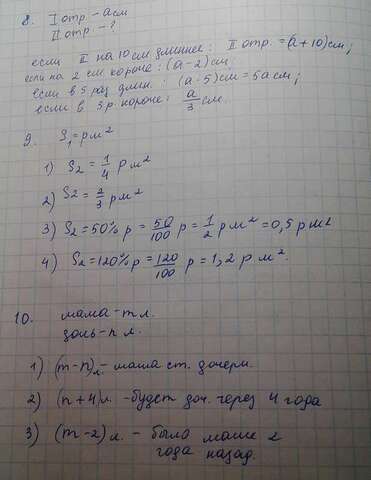 8. I отр. - а см
II отр - ?
если II на 10 см длиннее: II отр. = (а + 10) см;
если на 2 см короче: (а - 2) см
если в 5 раз длин. : (а · 5) см = 5а см;
если в 3 р. короче: а/3 см.
9. S₁ = р м²
1) S₂ = 1/4 р м²
2) S₂ = 2/3 р м²
3) S₂ = 50% р = 50/100 р = 1/2 р м² = 0,5 р м²
4) S₂ = 120% р = 120/100 р = 1,2 р м².
10. мама - m л.
дочь - n л.
1) (m - n) л - мама ст. дочери.
2) (n + 4) л. - будет доч. через 4 года
3) (m - 2) л. - было маме 2
года назад.